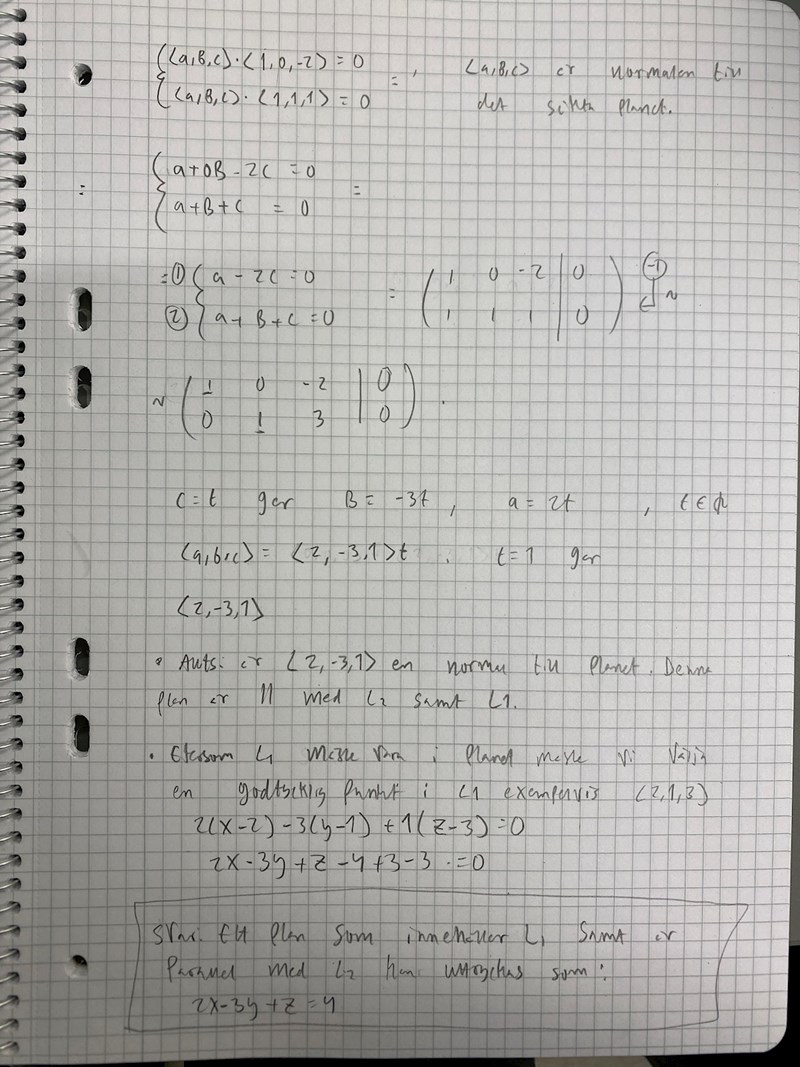 { <a,B,c>·<1,0,-2> = 0
{ <a,B,c>·<1,1,1> = 0 = , <a,B,c> er normalen till
det sökta planet.
= { a+0B-2c = 0
{ a+B+c = 0 =
=① { a - 2c = 0
② { a + B + c = 0 = ( 1 0 -2 | 0 ) (-1)
( 1 1 1 | 0 ) ~
~ ( 1 0 -2 | 0 )
( 0 1 3 | 0 ) .
c=t ger B = -3t , a = 2t , t∈R
<a,b,c> = <2,-3,1>t . t=1 ger
<2,-3,1>
• Alltså er <2,-3,1> en normal till planet. Denna
plan er // med L2 samt L1.
• Eftersom L1 måste vara i planet måste vi välja
en godtycklig punkt i L1 exempelvis (2,1,3)
2(x-2) -3(y-1) +1(z-3) = 0
2x-3y+z-4+3-3 = 0
Svar: Ett plan som innehåller L1 samt er
Parallel med L2 kan uttryckas som:
2x-3y+z=4